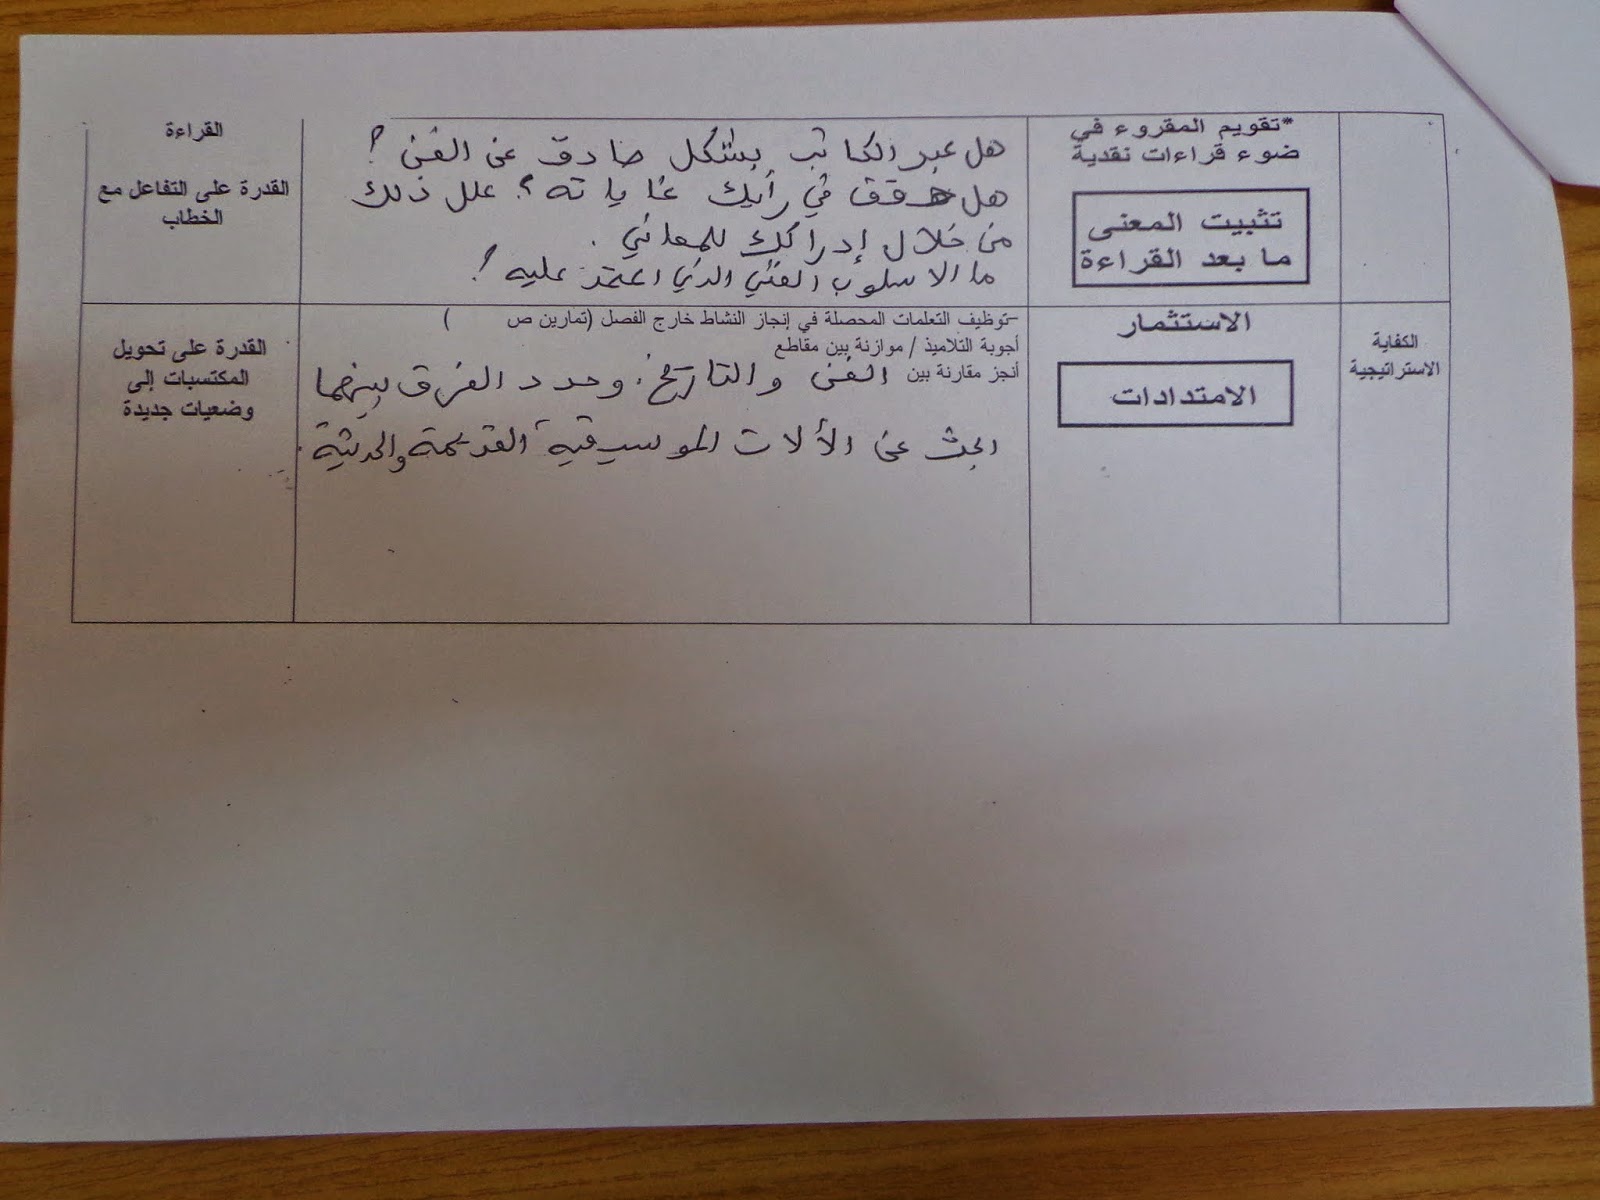 *تقويم المقروء في
ضوء قراءات نقدية
تثبيت المعنى
ما بعد القراءة
هل عبر الكاتب بشكل صادق عن الفن ؟
هل حقق في رأيك غاياته ؟ علل ذلك
من خلال إدراكك للمعاني .
ما الاسلوب الفني الذي اعتمد عليه ؟
القراءة
القدرة على التفاعل مع
الخطاب
الكفاية
الاستراتيجية
الاستثمار
الامتدادات
-توظيف التعلمات المحصلة في إنجاز النشاط خارج الفصل (تمارين ص )
أجوبة التلاميذ / موازنة بين مقاطع
أنجز مقارنة بين الفن والتاريخ. وحدد الفرق بينهما
البحث عن الألات الموسيقية القديمة والحديثة.
القدرة على تحويل
المكتسبات إلى
وضعيات جديدة